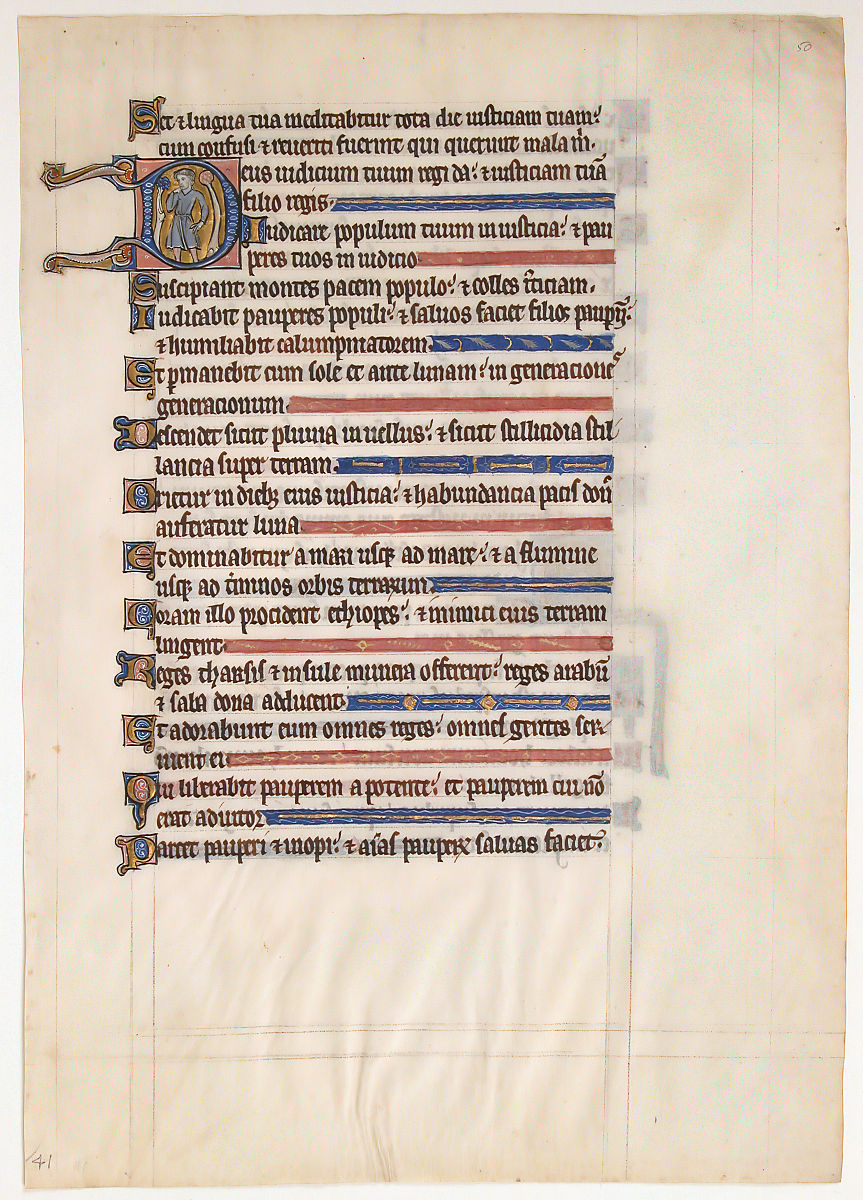 50
Set ⁊ lingua tua meditabitur tota die iusticiam tuam:
cum confusi ⁊ reuerti fuerint qui querunt mala m̄.
Deus iudicium tuum regi da: ⁊ iusticiam tuā
filio regis.
Iudicare populum tuum in iusticia: ⁊ pau
peres tuos in iudicio
Suscipiant montes pacem populo: ⁊ colles
Iudicabit pauperes populi: ⁊ saluos faciet filios
⁊ humiliabit calumpniatorem.
Et p̱manebit cum sole et ante lunam: in generatione
generacionum.
Descendet sicut pluuia in uellus: ⁊ sicut stillicidia stil
lancia super terram.
Orietur in dieb; eius iusticia: ⁊ habundancia pacis don̄
auferatur luna
Et dominabitur a mari usq; ad mare: ⁊ a flumine
usq; ad t̄minos orbis terrarum.
Coram illo procident ethiopes: ⁊ inimici eius terram
lingent.
Reges tharsis ⁊ insule munera offerent: reges arabū
⁊ saba dona adducent.
Et adorabunt eum omnes reges: omnes gentes ser
uient ei
Qui liberabit pauperem a potente: et pauperem cui nō
erat adiutor
Parcet pauperi ⁊ inopi: ⁊ aīas pauperꝝ saluas faciet:
41